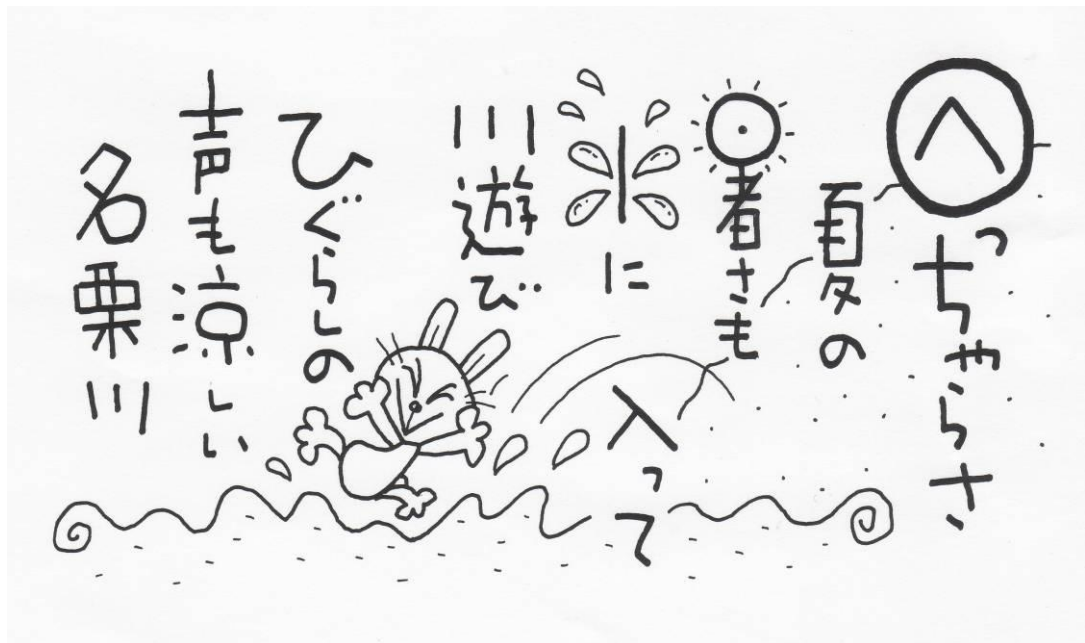 へっちゃらさ
夏の
暑さも
水に
入って
川遊び
ひぐらしの
声も涼しい
名栗川